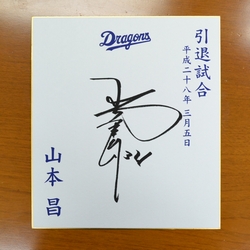 Dragons
引退試合
平成二十八年三月五日
山本昌
34